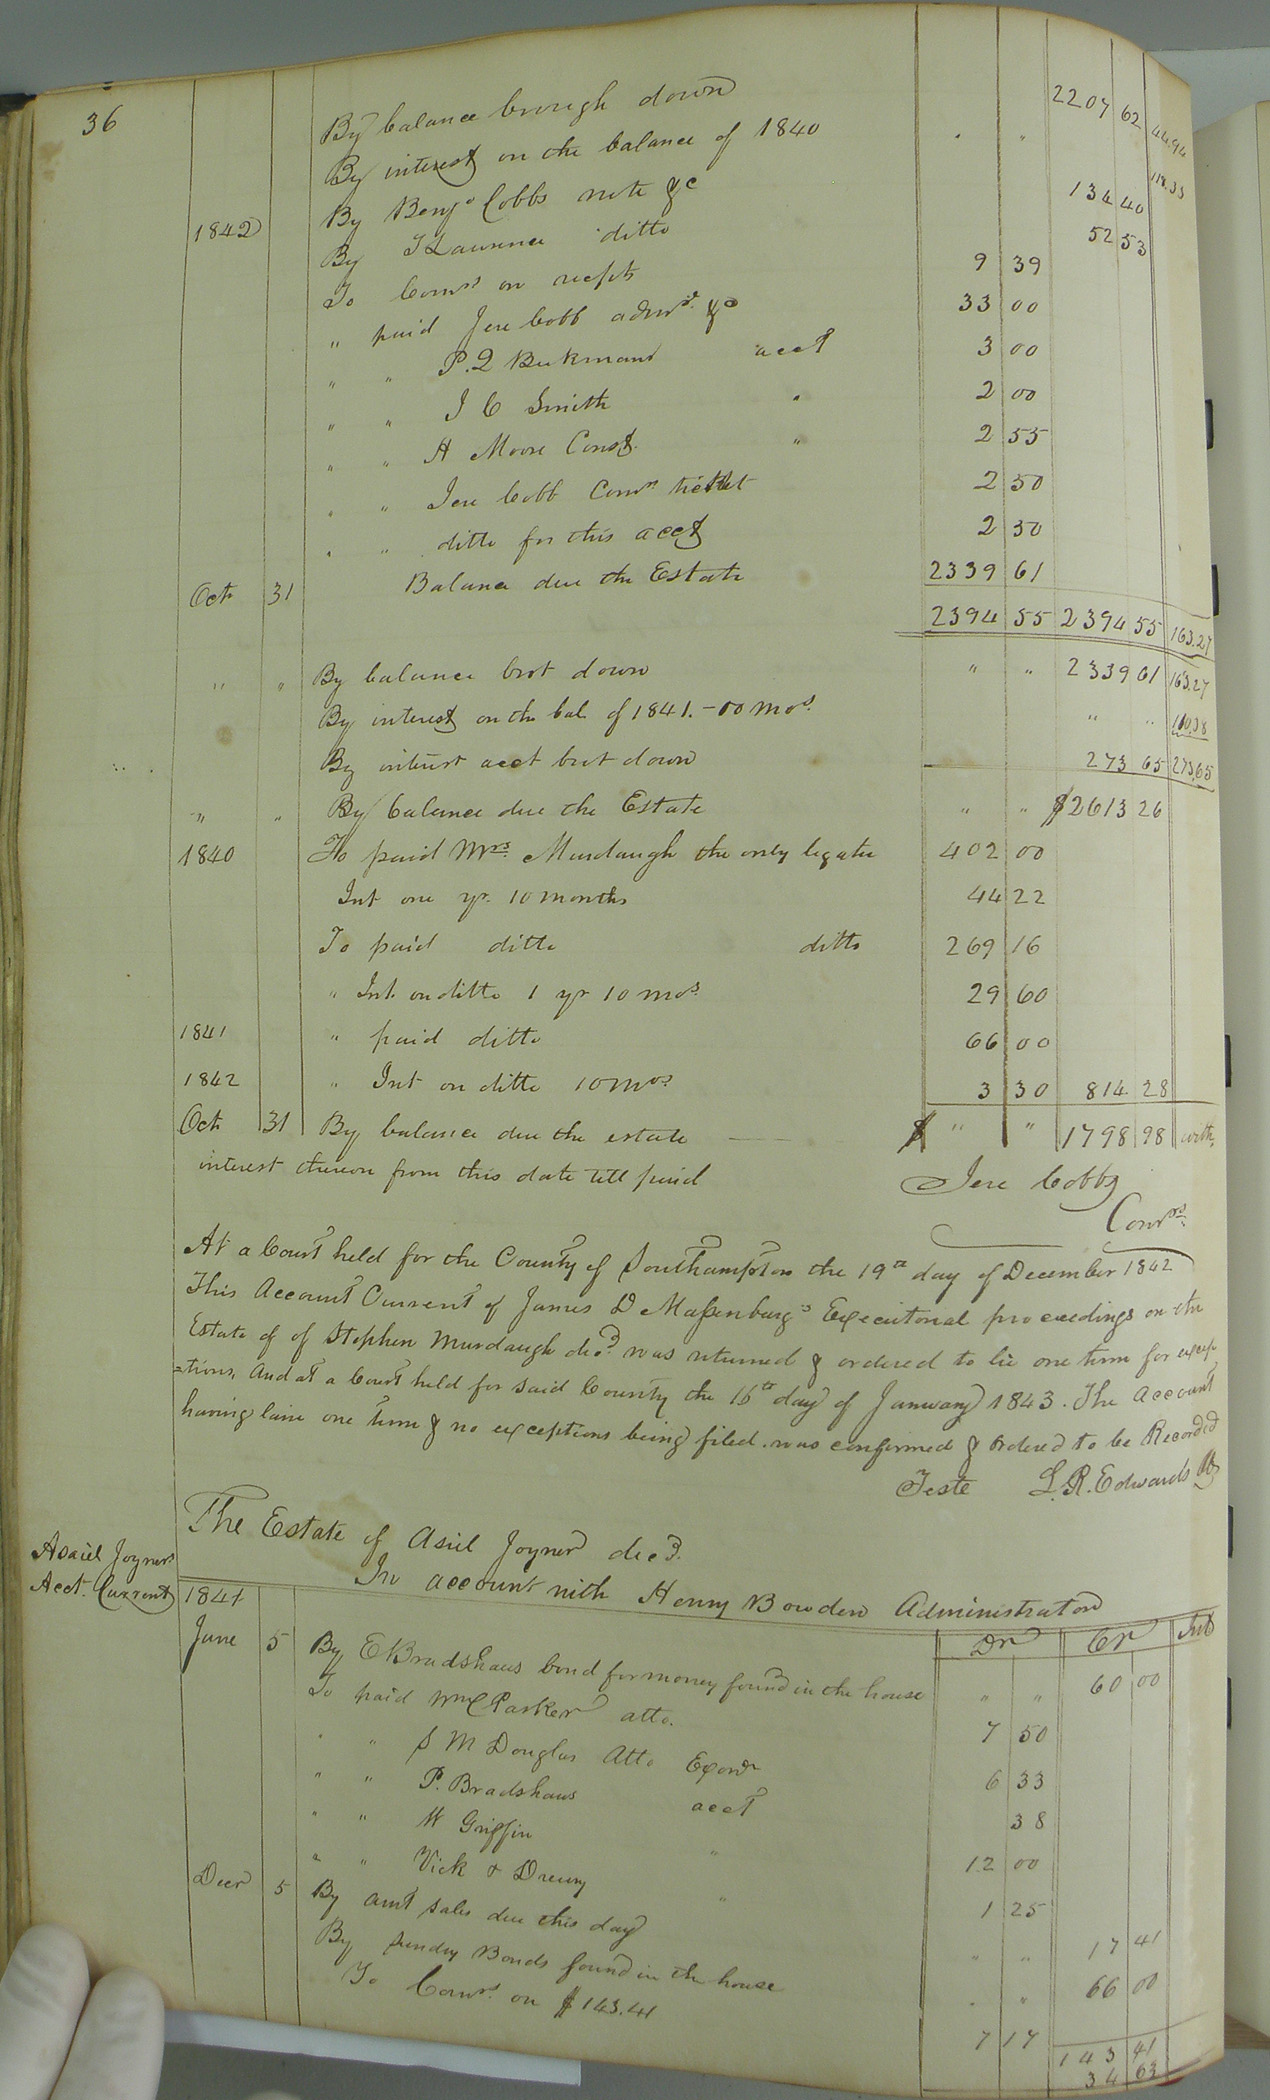 36
By balance brough down 2207 62 44.94
By interest on the balance of 1840 " " 118.33
1842 By Benj° Cobbs note &c 134 40
By T Lawrence ditto 52 53
To Coms on recpts 9 39
" paid Jere Cobb admr. &c 33 00
" " P. Q Beekmans acct 3 00
" " J C Smith " 2 00
" " A Moore Const. " 2 55
" " Jere Cobb Comr ticket 2 50
" " ditto for this acct 2 50
Oct 31 Balance due the Estate 2339 61
2394 55 2394 55 163.27
" " By balance brot down " " 2339 61 163.27
By interest on the bal of 1841. - 00 mos. " " 110.38
By interest acct brot down 273 65 273,65
" " By balance due the Estate " " $2613 26
1840 To paid Mrs. Murdaugh the only legatee 402 00
Int one yr 10 months 44 22
To paid ditto ditto 269 16
" Int. on ditto 1 yr 10 mos. 29 60
1841 " paid ditto 66 00
1842 " Int on ditto 10 mos. 3 30 814 28
Oct 31 By balance due the estate $ " " 1798 98 with
interest thereon from this date till paid
Jere Cobb
Comr.
At a Court held for the County of Southampton the 19th day of December 1842
This Account Current of James D Massenburg's Executorial proceedings on the
Estate of of Stephen Murdaugh decd. was returned & ordered to lie one term for excep
=tions, And at a Court held for said County the 16th day of January 1843. The Account
having lain one term & no exceptions being filed. was confirmed & ordered to be Recorded
Teste L. R. Edwards
The Estate of Asiel Joyner decd.
Asaiel Joyners
Acct. Current
In account with Henry Bowden Administrator
1841 Dr Cr Int
June 5 By E Bradshaws bond for money found in the house " " 60 00
To paid Wm C Parker atto. 7 50
" " S M Douglas Atto Exor 6 33
" " P. Bradshaws acct 38
" " W Griffin " 12 00
" " Vick & Drewry " 1 25
Decr 5 By amt sales due this day " " 17 41
By sundry Bonds found in the house " " 66 00
To Coms. on $143.41 7 17
143 41
34 63